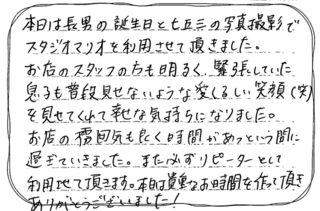 本日は長男の誕生日と七五三の写真撮影で
スタジオマリオを利用させて頂きました。
お店のスタッフの方も明るく、緊張していた
息子も普段見せないような愛くるしい笑顔(笑)
を見せてくれて幸せな気持ちになりました。
お店の雰囲気も良く時間があっという間に
過ぎていきました。また必ずリピーターとして
利用させて頂きます。本日は貴重なお時間を作って頂き
ありがとうございました!